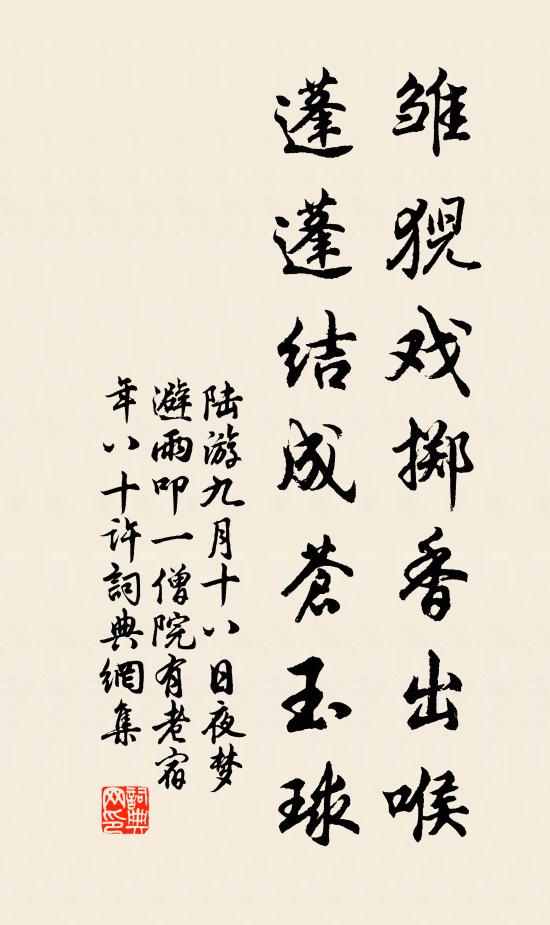 雏猊戏掷香出喉
蓬蓬结成苍玉球
陆游九月十八日夜梦
避雨叩一僧院有老宿
年八十许詞典網集
詞典网印